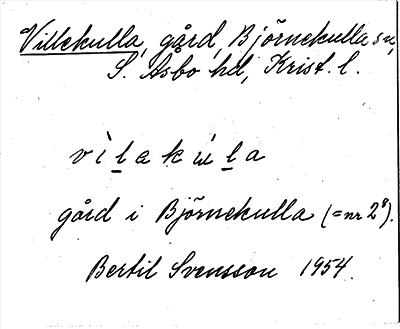 Villekulla, gård, Björnekulla sn,
S. Åsbo hd, Krist. l.
vìlakúla
gård i Björnekulla (=nr 2⁸).
Bertil Svensson 1954.